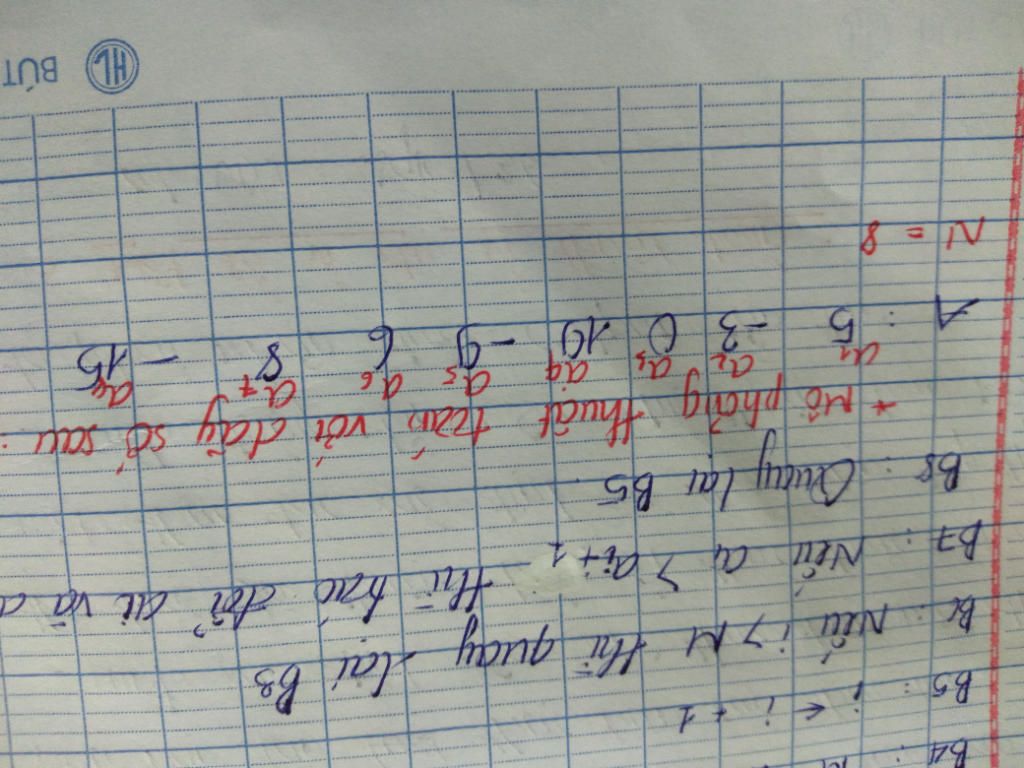 B4 :
B5 : i ← i + 1
B6 : Nếu i > M thì quay lại B3
B7 : Nếu ai > ai+1 thì tráo đổi ai và a
B8 : Quay lại B5
+ Mô phỏng thuật toán với dãy số sau :
a1 a2 a3 a4 a5 a6 a7 a8
A : 5 -3 0 10 -9 6 8 -15
N = 8
HL BÚT